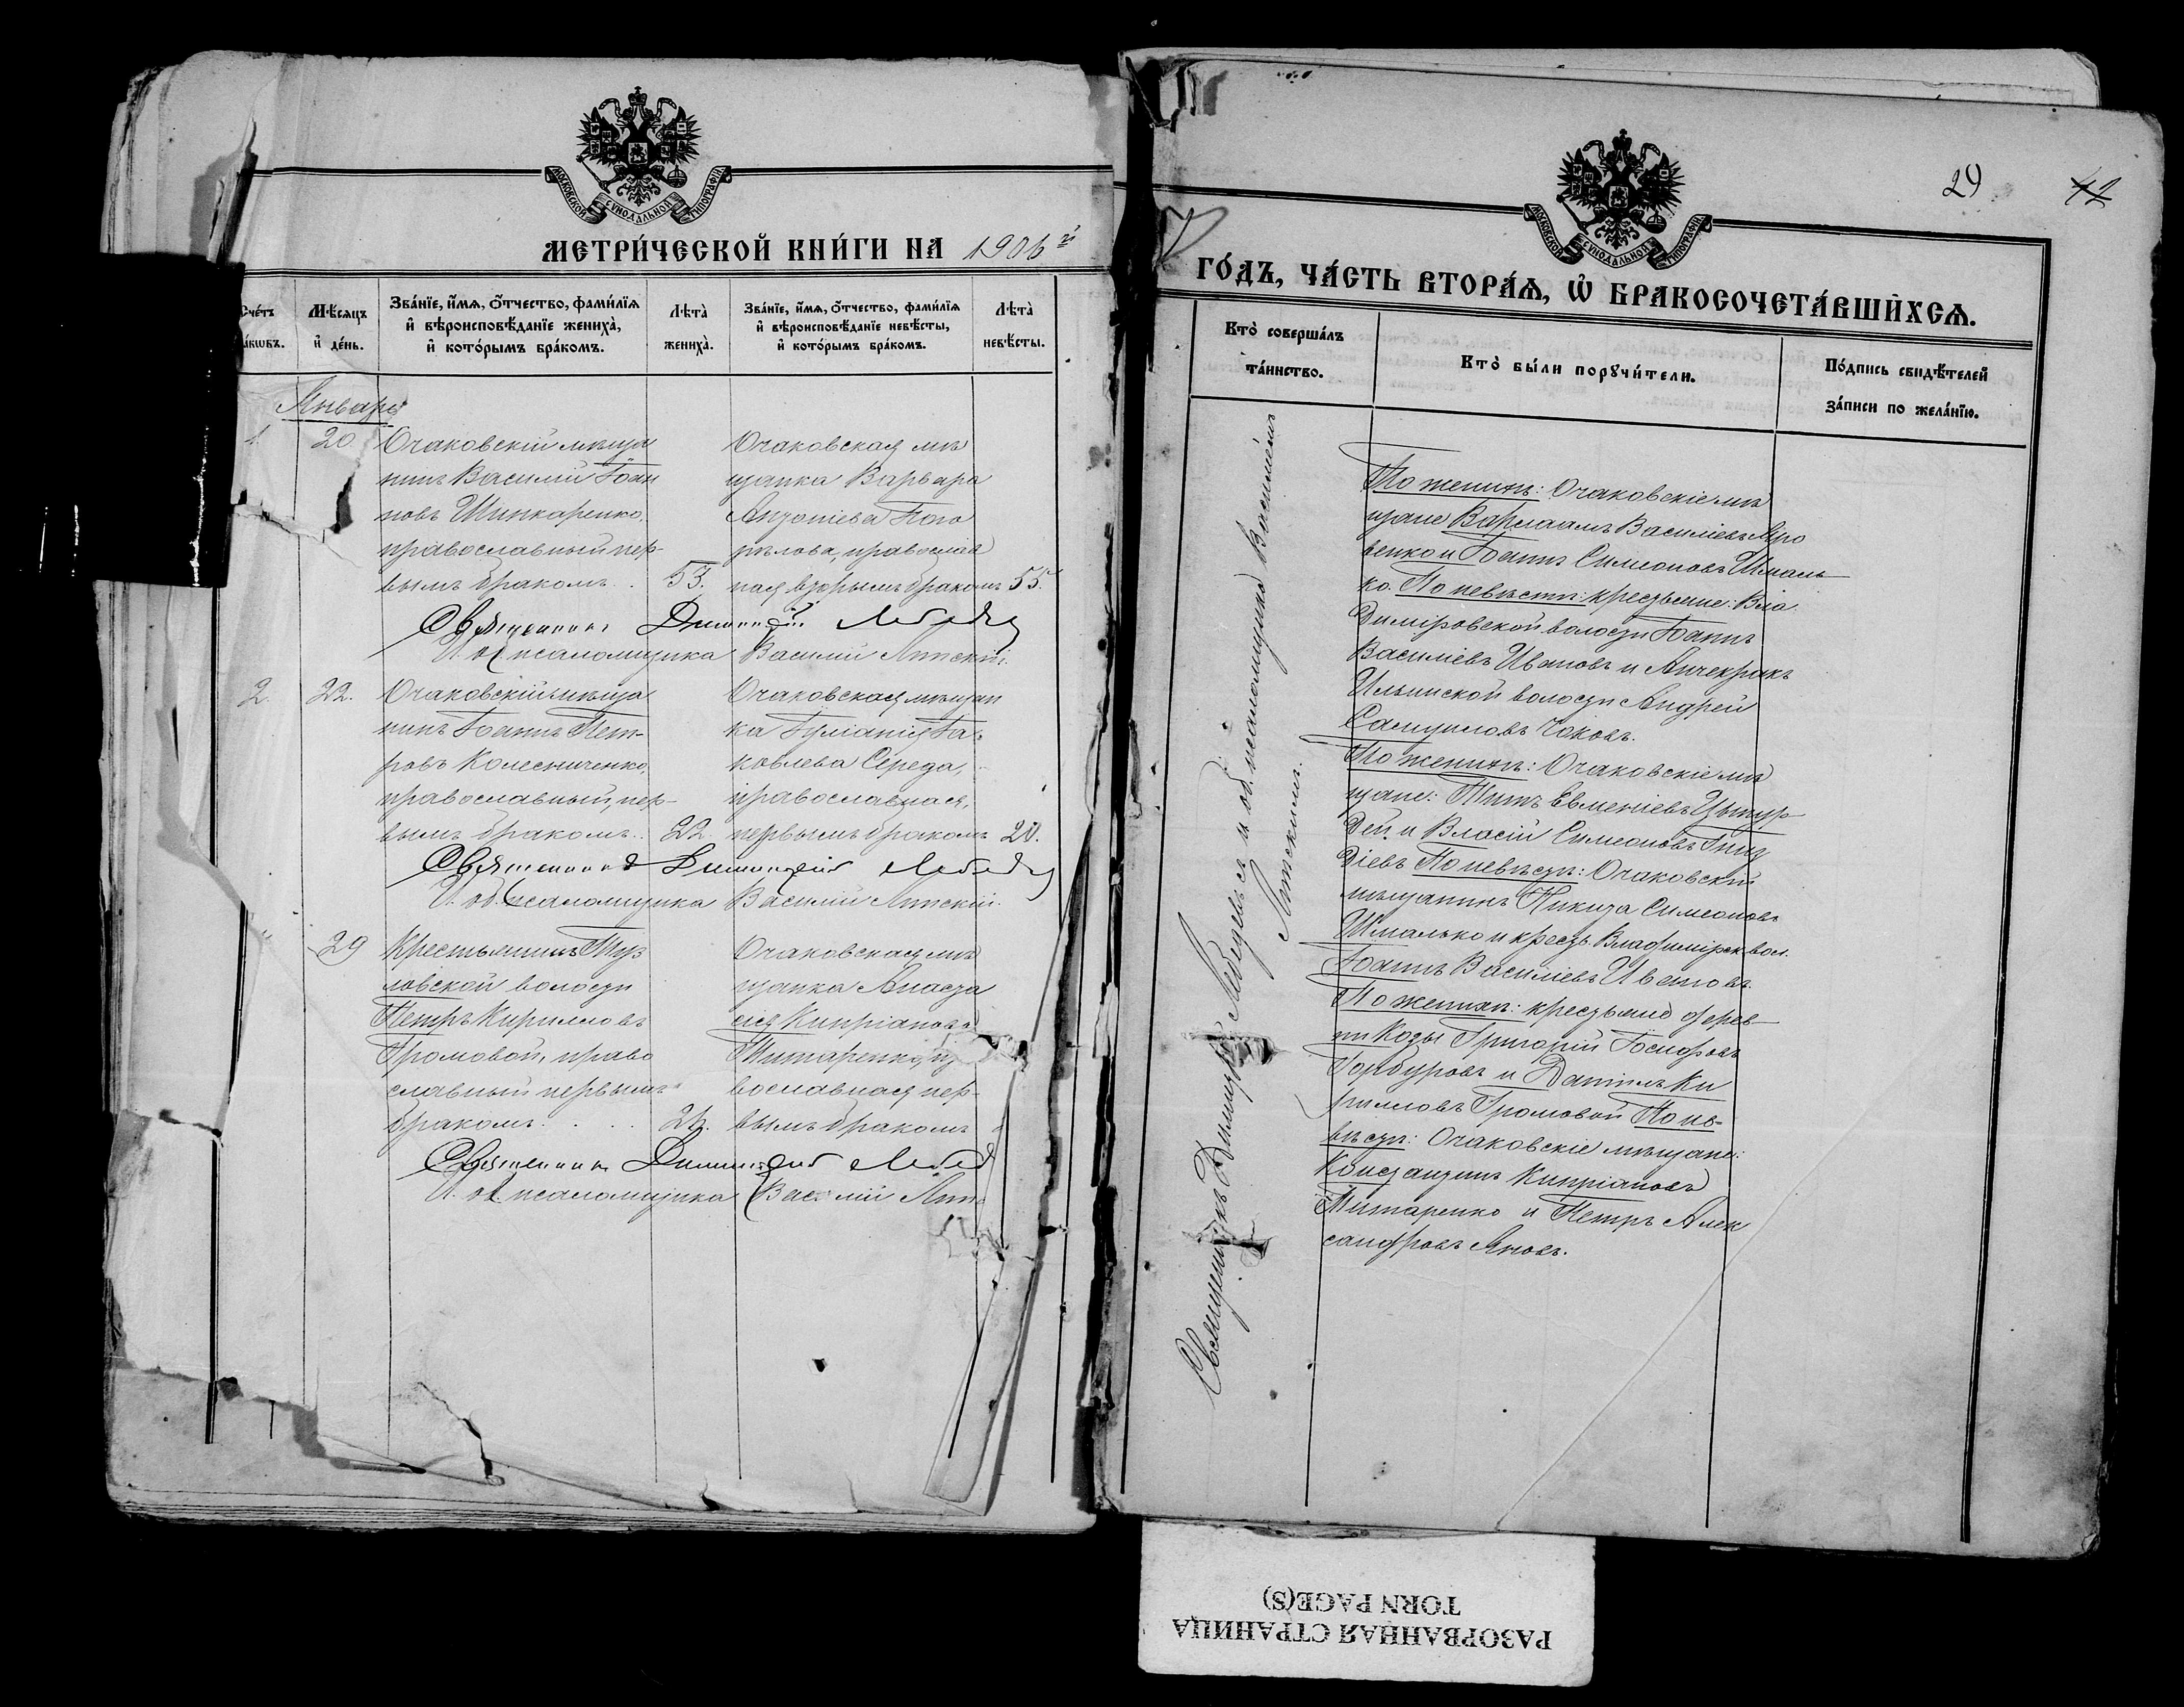 МОСКОВСКОЙ СУНОДАЛЬНОЙ ТИПОГРАФІИ
МЕТРИ́ЧЕСКОЙ КНИ́ГИ НА 1906й
Счетъ
браковъ.
Мѣсяцъ
и день.
Званіе, имя, отчество, фамилія
и вѣроисповѣданіе жениха,
и которымъ бракомъ.
Лѣта
жениха.
Званіе, имя, отчество, фамилія
и вѣроисповѣданіе невѣсты,
и которымъ бракомъ.
Лѣта
невѣсты.
Январь
1. 20
Очаковскій мѣща
нинъ Василій Іоан
новъ Шинкаренко,
православный пер-
вымъ бракомъ. 53.
Очаковская мѣ
щанка Варвара
Антоніева Пого
рѣлова, православ
ная вторымъ бракомъ 55.
Священникъ Димитрій Лебедев
И. об. псаломщика Василій Липскій.
2. 22.
Очаковскій мѣща
нинъ Іоаннъ Пет-
ровъ Колесниченко,
православный, пер-
вымъ бракомъ. 22
Очаковская мѣщан
ка Іуліанія Іа
ковлева Середа,
православная,
первымъ бракомъ 20.
Священникъ Димитрій Лебедев
И. об. псаломщика Василій Липскій.
29
Крестьянинъ Туз
ловской волости
Петръ Кирилловъ
Громовой, право
славный первымъ
бракомъ. 26.
Очаковская мѣ
щанка Анаста
сія Кипріанова
Титаренко,
вославная пер-
вымъ бракомъ
Священникъ Димитрій Лебед
И. об. псаломщика Василій Лип
29 42
МОСКОВСКОЙ СУНОДАЛЬНОЙ ТИПОГРАФІИ
ГО́ДЪ, ЧА́СТЬ ВТОРА́Я, Ѡ БРАКОСОЧЕТА́ВШИХСЯ.
Кто совершалъ
таинство.
Кто были поручители.
Подпись свидѣтелей
записи по желанію.
Священникъ Димитрій Лебедевъ съ и. об. псаломщика Василіемъ
Липскимъ.
По женихѣ: Очаковскіе мѣ
щане Варлаамъ Василіевъ
венко и Іоаннъ Симеоновъ Шмаль
ко. По невѣстѣ: крестьяне: Вла
димировской волости Іоаннъ
Василіевъ Ивановъ и Анчекракъ
Ильинской волости Андрей
Самуиловъ Чаковъ.
По женихѣ: Очаковскіе мѣ
щане: Титъ Евменіевъ
дей и Власій Симеоновъ Гниз
діевъ По невѣстѣ: Очаковскій
мѣщанинъ Никита Симеоновъ
Шмалько и крест. Владимірск. вол.
Іоаннъ Василіевъ Ивановъ
По женихѣ: крестьяне дерев-
ни Козы Григорій Іосифовъ
Горбуровъ и Даніилъ Ки
рилловъ Громовой По не-
вѣстѣ: Очаковскіе мѣщане:
Константинъ Кипріановъ
Титаренко и Петръ Алек
сандровъ Яновъ.
РАЗОРВАННАЯ СТРАНИЦА
TORN PAGE(S)